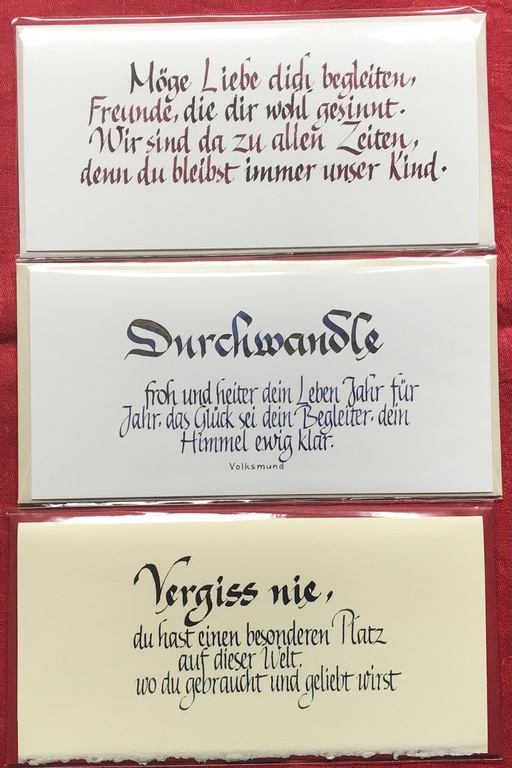 Möge Liebe dich begleiten,
Freunde, die dir wohl gesinnt.
Wir sind da zu allen Zeiten,
denn du bleibst immer unser Kind.
Durchwandle
froh und heiter dein Leben Jahr für
Jahr, das Glück sei dein Begleiter, dein
Himmel ewig klar.
Volksmund
Vergiss nie,
du hast einen besonderen Platz
auf dieser Welt,
wo du gebraucht und geliebt wirst